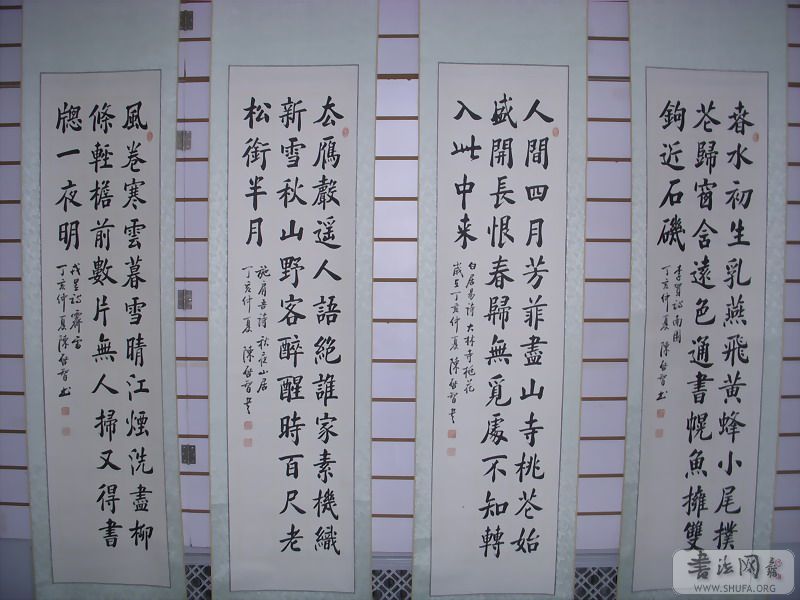 春水初生乳燕飛黃蜂小尾撲
花歸窗含遠色通書幌魚擁雙
鉤近石磯
李賀詩南園
丁亥仲夏陳啟智書
人間四月芳菲盡山寺桃花始
盛開長恨春歸無覓處不知轉
入此中来
白居易詩大林寺桃花
歲在丁亥仲夏陳啟智書
天雁聲遥人語絕誰家素機織
新雪秋山野客醉醒時百尺老
松銜半月
施肩吾詩秋夜山居
丁亥仲夏陳啟智書
風卷寒雲暮雪晴江煙洗盡柳
條輕檐前數片無人掃又得書
牕一夜明
戎昱詩霽雪
丁亥仲夏陳啟智书
書法网
WWW.SHUFA.ORG